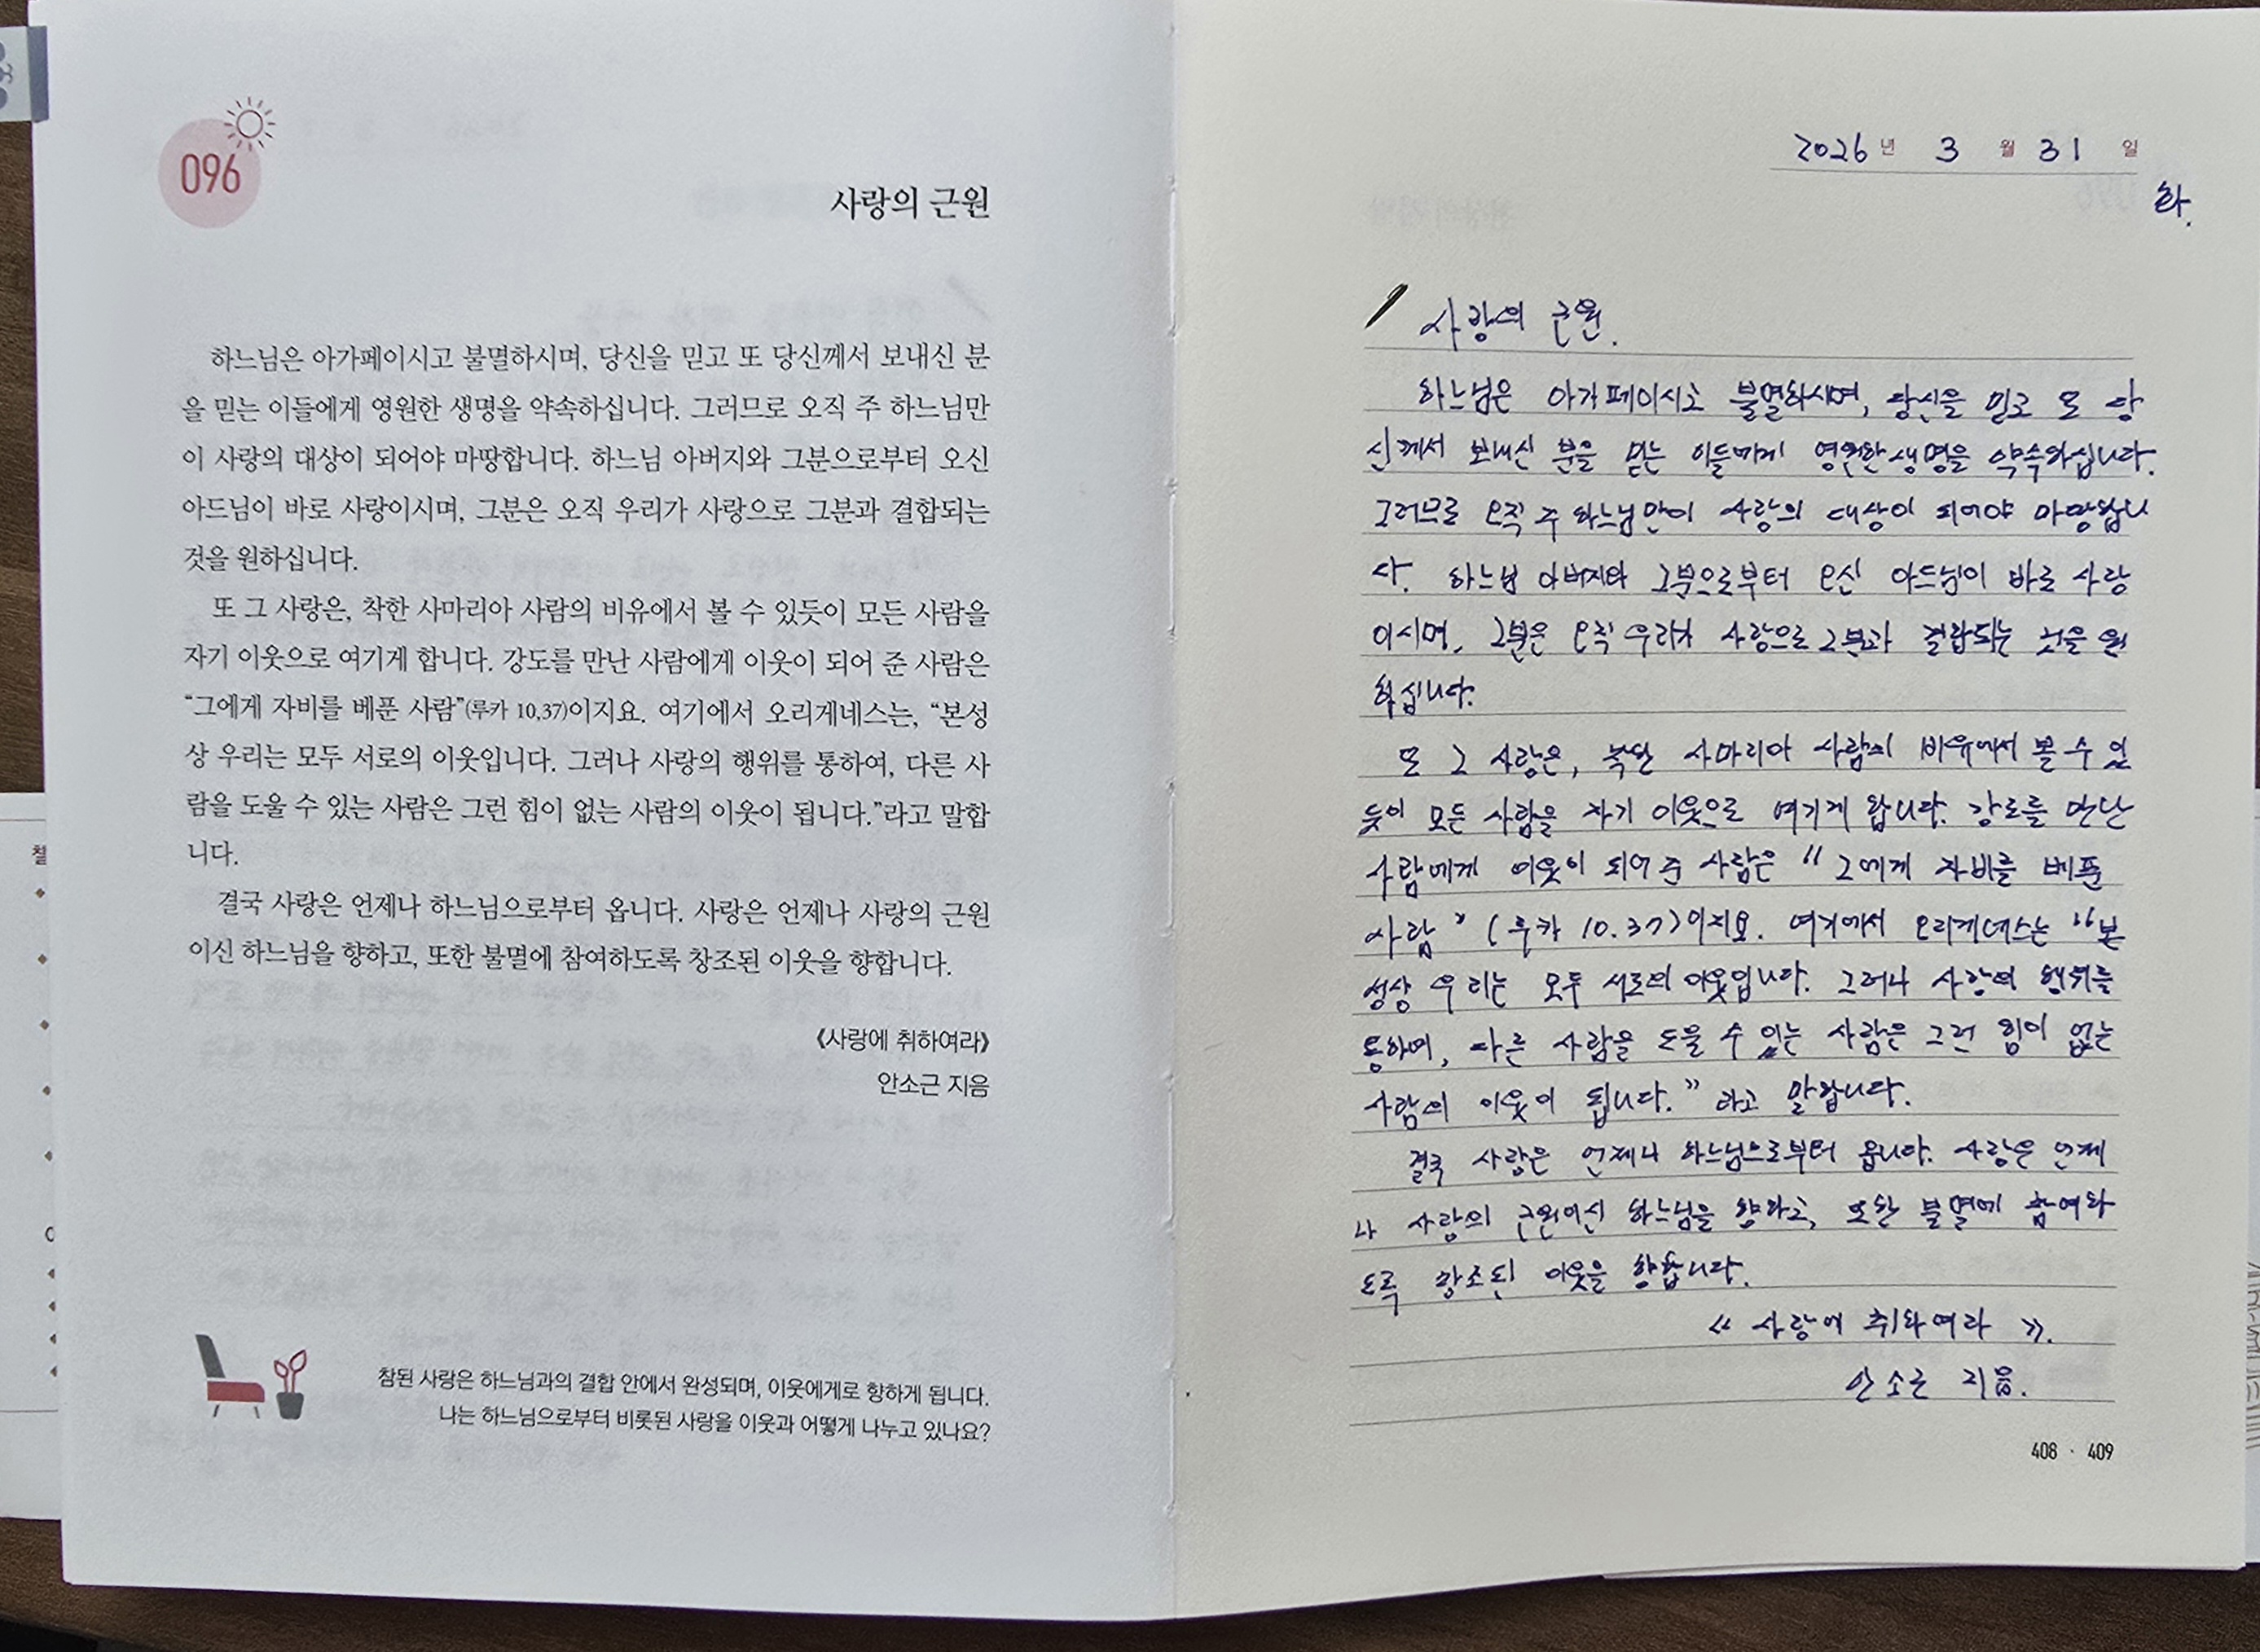 096
사랑의 근원
하느님은 아가페이시고 불멸하시며, 당신을 믿고 또 당신께서 보내신 분
을 믿는 이들에게 영원한 생명을 약속하십니다. 그러므로 오직 주 하느님만
이 사랑의 대상이 되어야 마땅합니다. 하느님 아버지와 그분으로부터 오신
아드님이 바로 사랑이시며, 그분은 오직 우리가 사랑으로 그분과 결합되는
것을 원하십니다.
또 그 사랑은, 착한 사마리아 사람의 비유에서 볼 수 있듯이 모든 사람을
자기 이웃으로 여기게 합니다. 강도를 만난 사람에게 이웃이 되어 준 사람은
“그에게 자비를 베푼 사람”(루카 10,37)이지요. 여기에서 오리게네스는, “본성
상 우리는 모두 서로의 이웃입니다. 그러나 사랑의 행위를 통하여, 다른 사
람을 도울 수 있는 사람은 그런 힘이 없는 사람의 이웃이 됩니다.”라고 말합
니다.
결국 사랑은 언제나 하느님으로부터 옵니다. 사랑은 언제나 사랑의 근원
이신 하느님을 향하고, 또한 불멸에 참여하도록 창조된 이웃을 향합니다.
《사랑에 취하여라》
안소근 지음
참된 사랑은 하느님과의 결합 안에서 완성되며, 이웃에게로 향하게 됩니다.
나는 하느님으로부터 비롯된 사랑을 이웃과 어떻게 나누고 있나요?
2026년 3월 31일
화.
사랑의 근원.
하느님은 아가페이시고 불멸하시며, 당신을 믿고 또 당
신께서 보내신 분을 믿는 이들에게 영원한 생명을 약속하십니다.
그러므로 오직 주 하느님만이 사랑의 대상이 되어야 마땅합니
다. 하느님 아버지와 그분으로부터 오신 아드님이 바로 사랑
이시며, 그분은 오직 우리가 사랑으로 그분과 결합되는 것을 원
하십니다.
또 그 사랑은, 사마리아 사람의 비유에서 볼 수 있
듯이 모든 사람을 자기 이웃으로 여기게 합니다. 강도를 만난
사람에게 이웃이 되어 준 사람은 “그에게 자비를 베푼
사람” (루카 10.37)이지요. 여기에서 오리게네스는 “본
성상 우리는 모두 서로의 이웃입니다. 그러나 사랑의 행위를
통하여, 다른 사람을 도울 수 있는 사람은 그런 힘이 없는
사람의 이웃이 됩니다.” 라고 말합니다.
결국 사랑은 언제나 하느님으로부터 옵니다. 사랑은 언제
나 사랑의 근원이신 하느님을 향하고, 또한 불멸에 참여하
도록 창조된 이웃을 향합니다.
《 사랑에 취하여라 》.
안소근 지음.
408 · 409